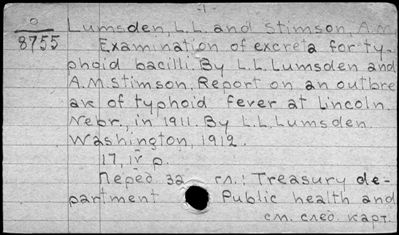 -1-
O Lumsden, L.L. and Stimson, A.M.
8755 Examination of excreta for ty-
phoid bacilli. By L.L. Lumsden and
A.M. Stimson. Report on an outbre
ak of typhoid fever at Lincoln.
Nebr., in 1911. By L.L. Lumsden.
Washington, 1912.
17, IV p.
Перед загл.: Treasury de-
partment Public health and
см. след. карт.